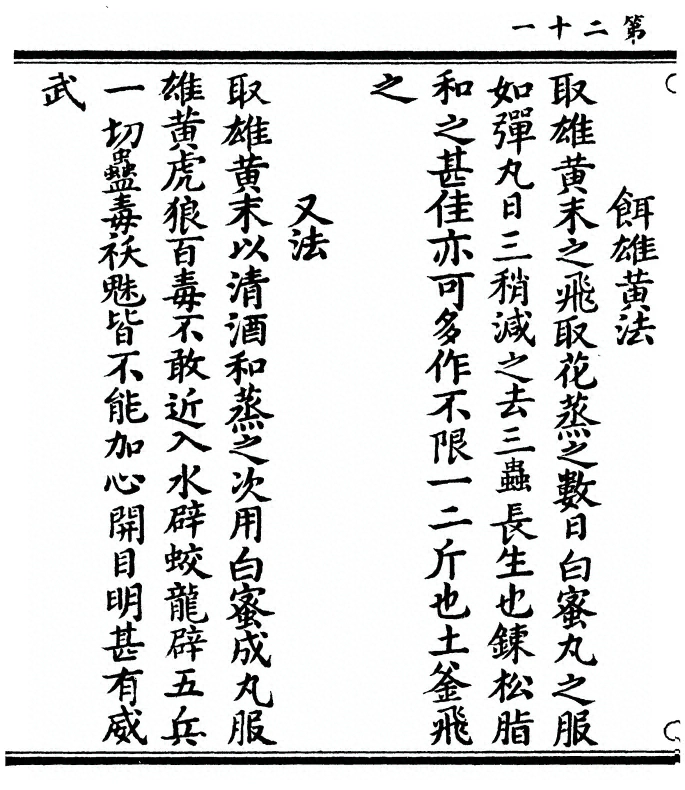 第二十一
餌雄黃法
取雄黃末之飛取花蒸之數日白蜜丸之服
如彈丸日三稍減之去三蟲長生也鍊松脂
和之甚佳亦可多作不限一二斤也土釜飛
之
又法
取雄黃末以清酒和蒸之次用白蜜成丸服
雄黃虎狼百毒不敢近入水辟蛟龍辟五兵
一切蠱毒祅魅皆不能加心開目明甚有威
武